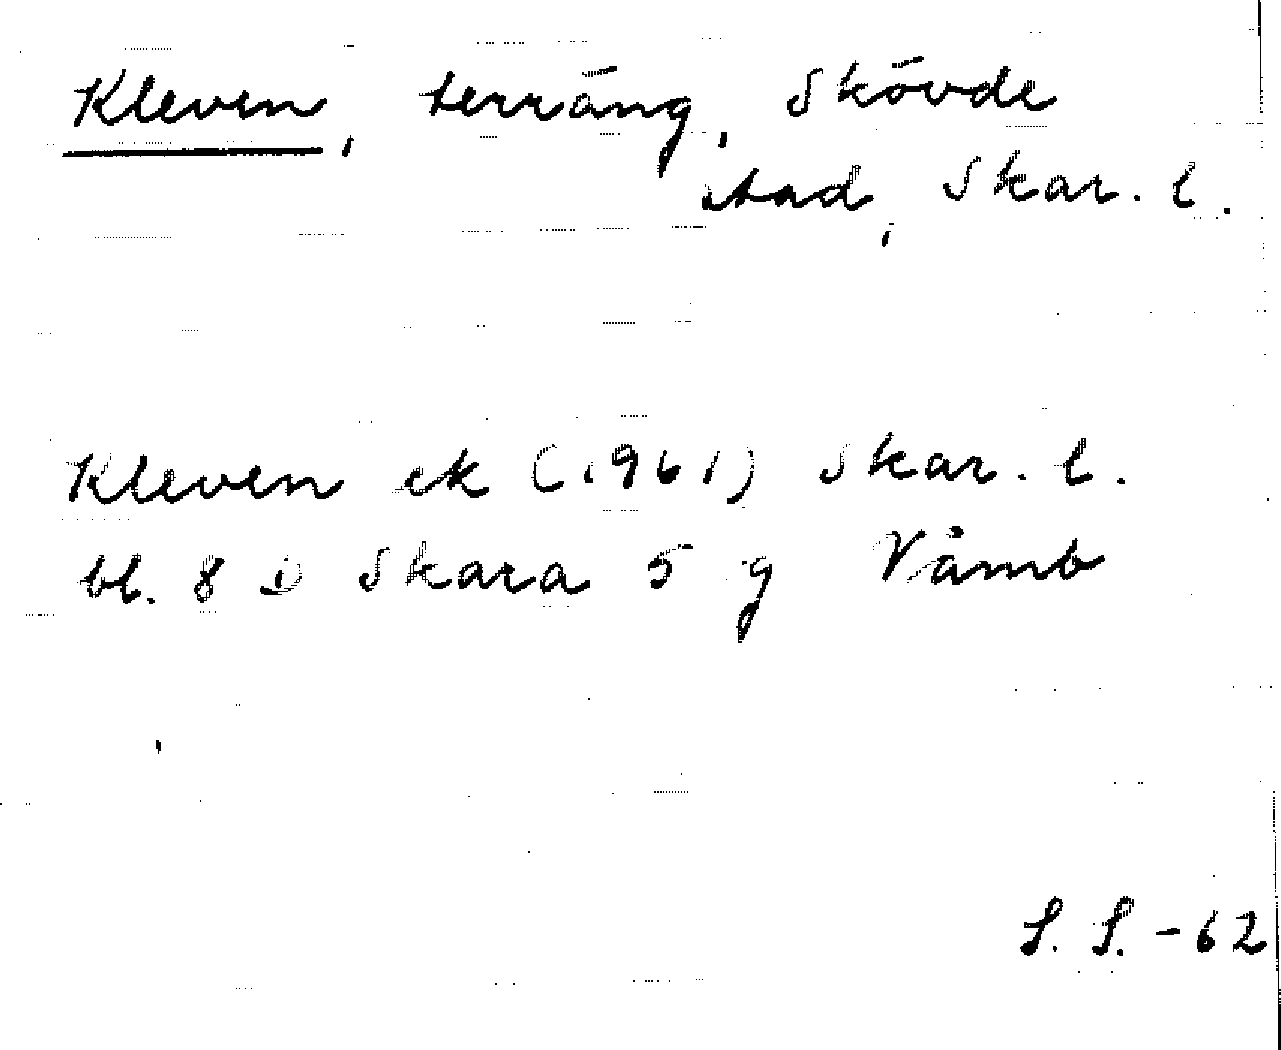 Kleven, terräng, Skövde
stad, Skar. l.
Kleven ek (1961) Skar. l.
bl. 8 D Skara 5 g Våmb
S. S. -62